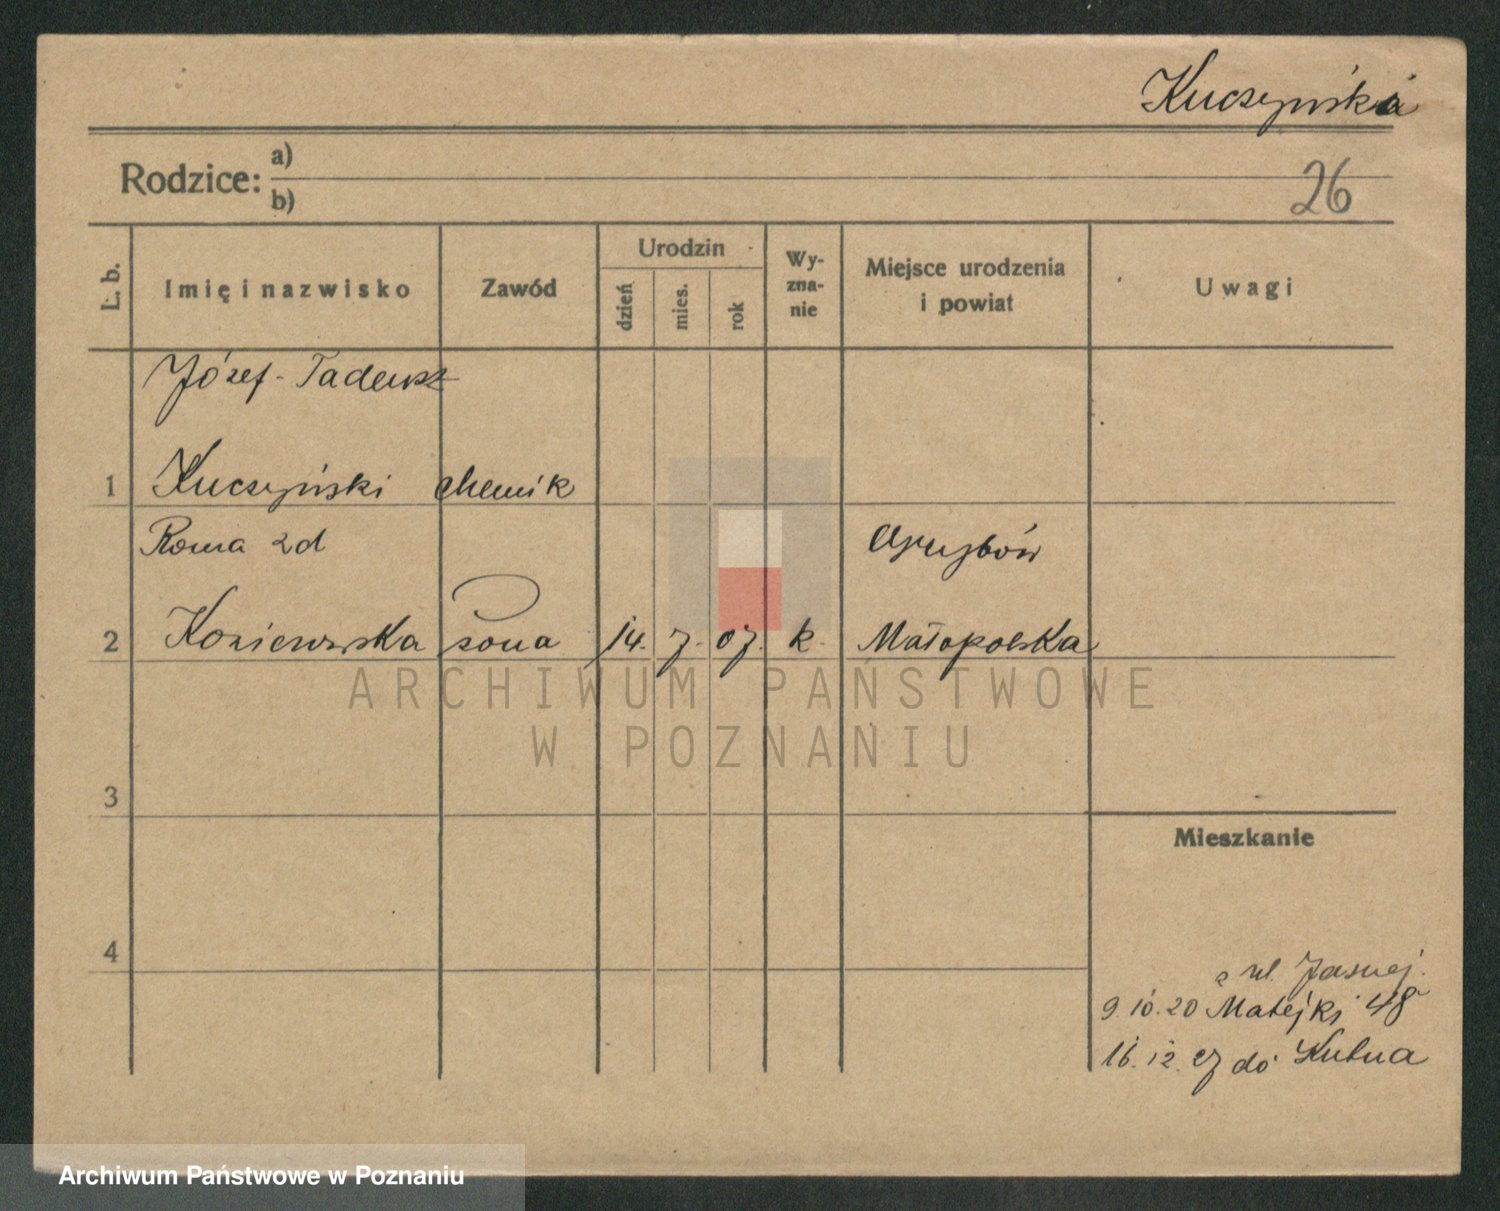 Kuczyńska
Rodzice: a)
b)
26
L. b.
Imię i nazwisko
Zawód
Urodzin
dzień
mies.
rok
Wy-
zna-
nie
Miejsce urodzenia
i powiat
Uwagi
Józef-Tadeusz
1 Kuczyński chemik
Roma 2d
2 Koniewska żona 14. 7. 07. k. Małopolska
ARCHIWUM PAŃSTWOWE
W POZNANIU
3
Mieszkanie
4
z ul. Jasnej.
9.10.20 Matejki 48
16.12. do Kutna
Archiwum Państwowe w Poznaniu